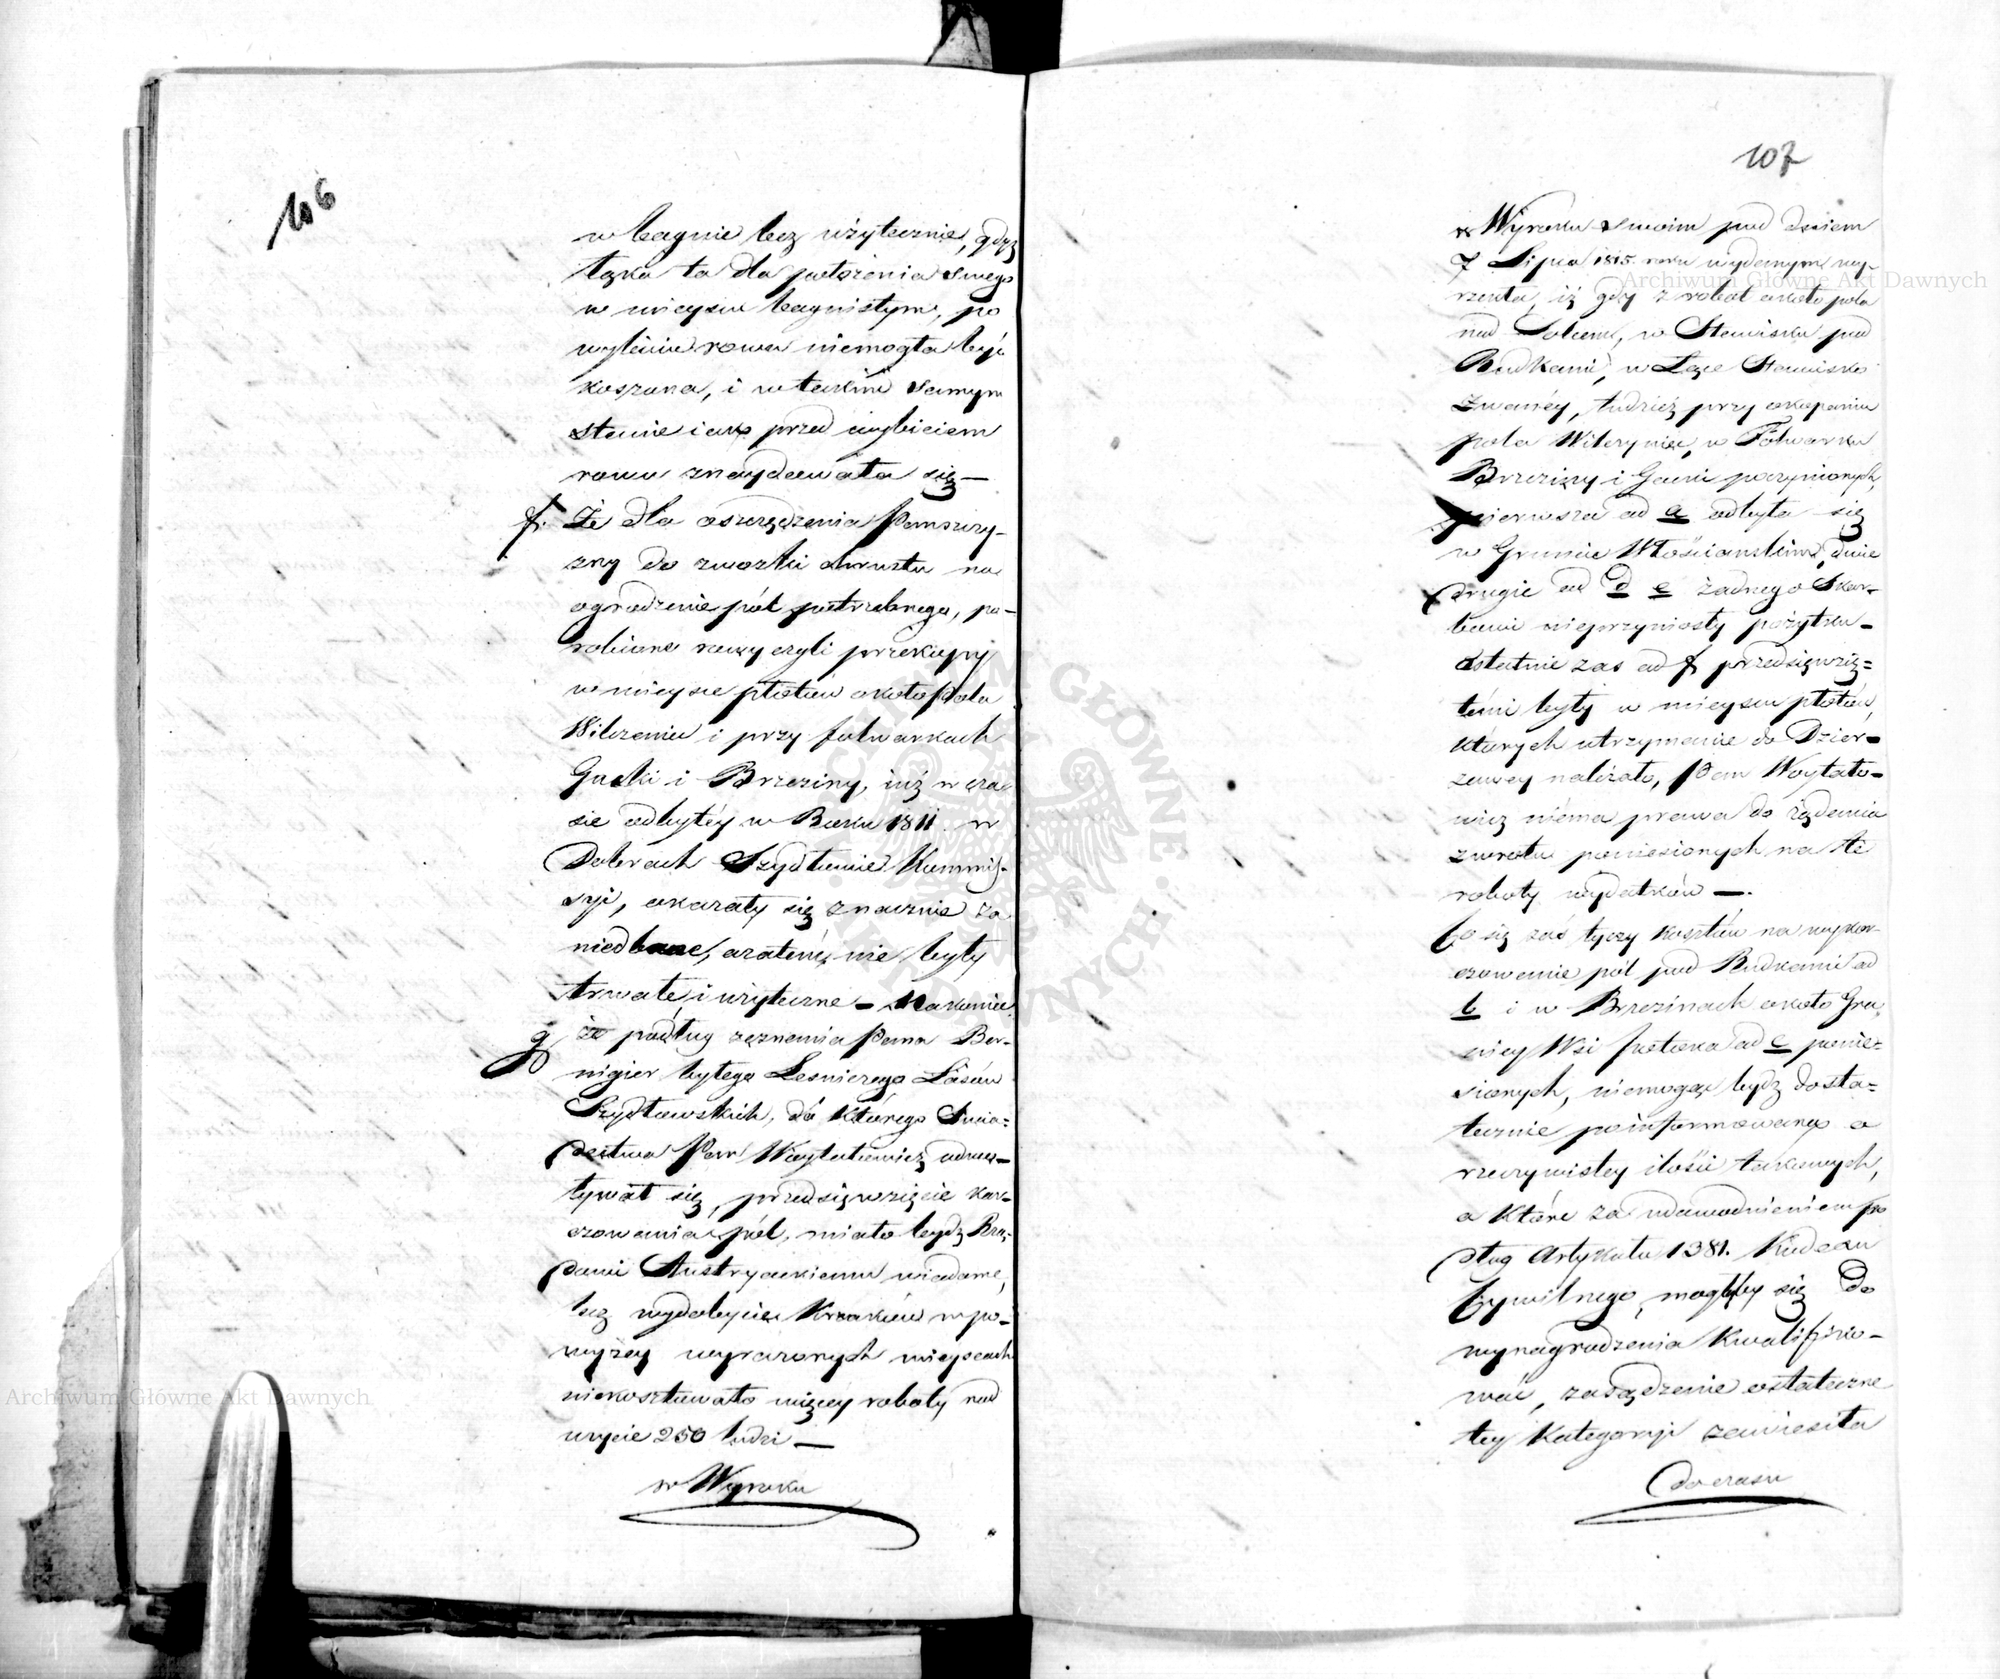 106
w bagnie bez użytecznie, gdyż
łąka ta dla położenia swego
w mieyscu bagnistym, po
wybiciu rowu niemogła być
koszona, i w takim samym
stanie iak przed wybiciem
rowu znaydowała się —
f. Że dla oszczędzenia Pańszczy-
zny do zwózki chrustu na
ogrodzenie pól potrzebnego, po-
robione rowy czyli przekopy
w mieysce płotów około Pola
Wilczeniec i przy folwarkach
Gacki i Brzeziny, iuż w cza
sie odbytéy w Roku 1811. w
Dobrach Szydłowie Kommis-
syi, okazały się znacznie za
niedbane, a zatém nie były
trwałe, i użyteczne — Nakoniec
g że podług zeznania Pana Ber-
nigier byłego Leśniczego Lasów
Szydłowskich, do którego Swia-
dectwa Pan Woytatowicz odwo-
ływał się, przedsięwzięcie kar-
czowania pól, miało bydź Rzą-
dowi Austryackiemu wiadome,
lecz wydobycie Krzaków w po-
wyżey wyrażonych mieyscach
niekosztowało więcey roboty nad
użycie 250 ludzi —
w Wyroku
107
w Wyroku Swoim pod dniem
7 Lipca 1815. roku wydanym wy-
rzekła, iż gdy z robót około pola
nad Solcem, w Stawisku pod
Rudkami, w Łące Stawisko
zwanéy, tudzież przy okopaniu
pola Wilczyniec, w Folwarku
Brzeziny i Gacki poczynionych,
pierwsza ad a odbyła się
w Gruncie Włościańskim, dwie
drugie ad d e żadnego Skar-
bowi nieprzyniosły pożytku —
ostatnie zaś ad f przedsięwzię=
témi były w mieyscu płotów,
których utrzymanie do Dzier-
żawcy należało, Pan Woytato-
wicz niéma prawa do żądania
zwrotu poniesionych na te
roboty wydatków —.
Co się zaś tyczy kosztów na wykar-
czowanie pól pod Rudkami ad
b i w Brzezinach około Gra
nicy Wsi Potoka ad c ponie=
sionych, niemogąc bydź dosta=
tecznie poinformowaną o
rzeczywistey ilości takowych,
a które za udowodnieniem po
dług Artykułu 1381. Kodexu
Cywilnego, mogłyby się do
wynagrodzenia kwalifiko-
wać, zasądzenie ostateczne
tey Kategoryi zawiesiła
do czasu